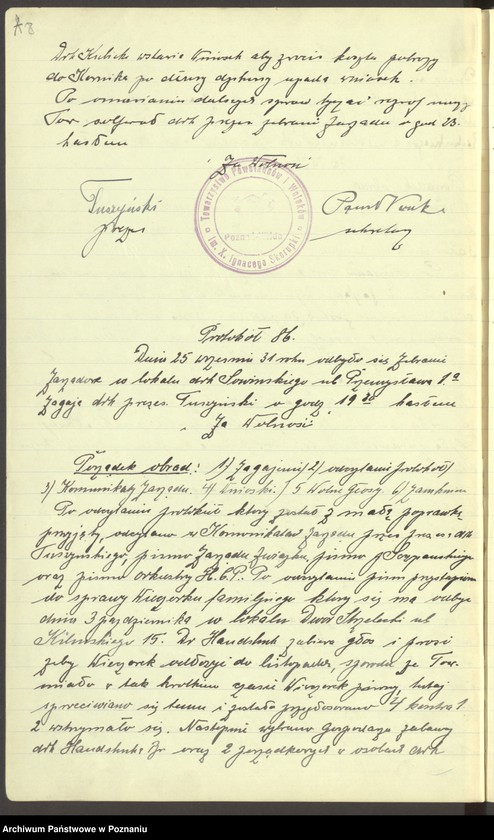 78
Drh Kubiak wstawia Wniosek aby zwrócić koszta podróży
do Kórnika po dłuższej dyskusji upada wniosek.
Po omówieniu dalszych spraw
Tow. drh prezes zebranie Zarządu o god 23.
hasłem
Za Wolność
Tuszyński
prezes
Towarzystwo Powstańców i Wojaków
im. X. Ignacego Skorupki
Poznań-Wilda
sekretarz
Protokół 86.
Dnia 25 września 31 roku odbyło się Zebranie
Zarządu w lokalu drh Sowińskiego ul Przemysława
Zagaja drh prezes Tuszyński o godz 19 30 hasłem
Za Wolność
Porządek obrad: 1) Zagajenie 2) odczytanie protokół
3) Komunikaty Zarządu. 4) Wnioski 5 Wolne Głosy 6) Zamknięcie
Po odczytaniu protokół który został z małą poprawką
przyjęty, odczytano Komunikaty Zarządu przez prezesa drh
Tuszyńskiego, pismo Zarządu Związku, pismo
oraz pismo orkiestry Po odczytaniu pism przystąpiono
do sprawy Wieczorku familijnego który się ma odbyć
dnia 3 października w lokalu Dwór Strzelecki ul
Kilińskiego 15. Dr Handschuh zabiera głos i prosi
żeby Wieczorek odłożyć do listopada, że Tow.
miało w tak krótkim czasie Wieczorek
sprzeciwiano się temu i zostało przegłosowano 4 kontra 1
2 wstrzymało się. Następnie wybrano Gospodarza zabawy
drh Handschuh oraz 2 porządkowych w osobach drh
Archiwum Państwowe w Poznaniu